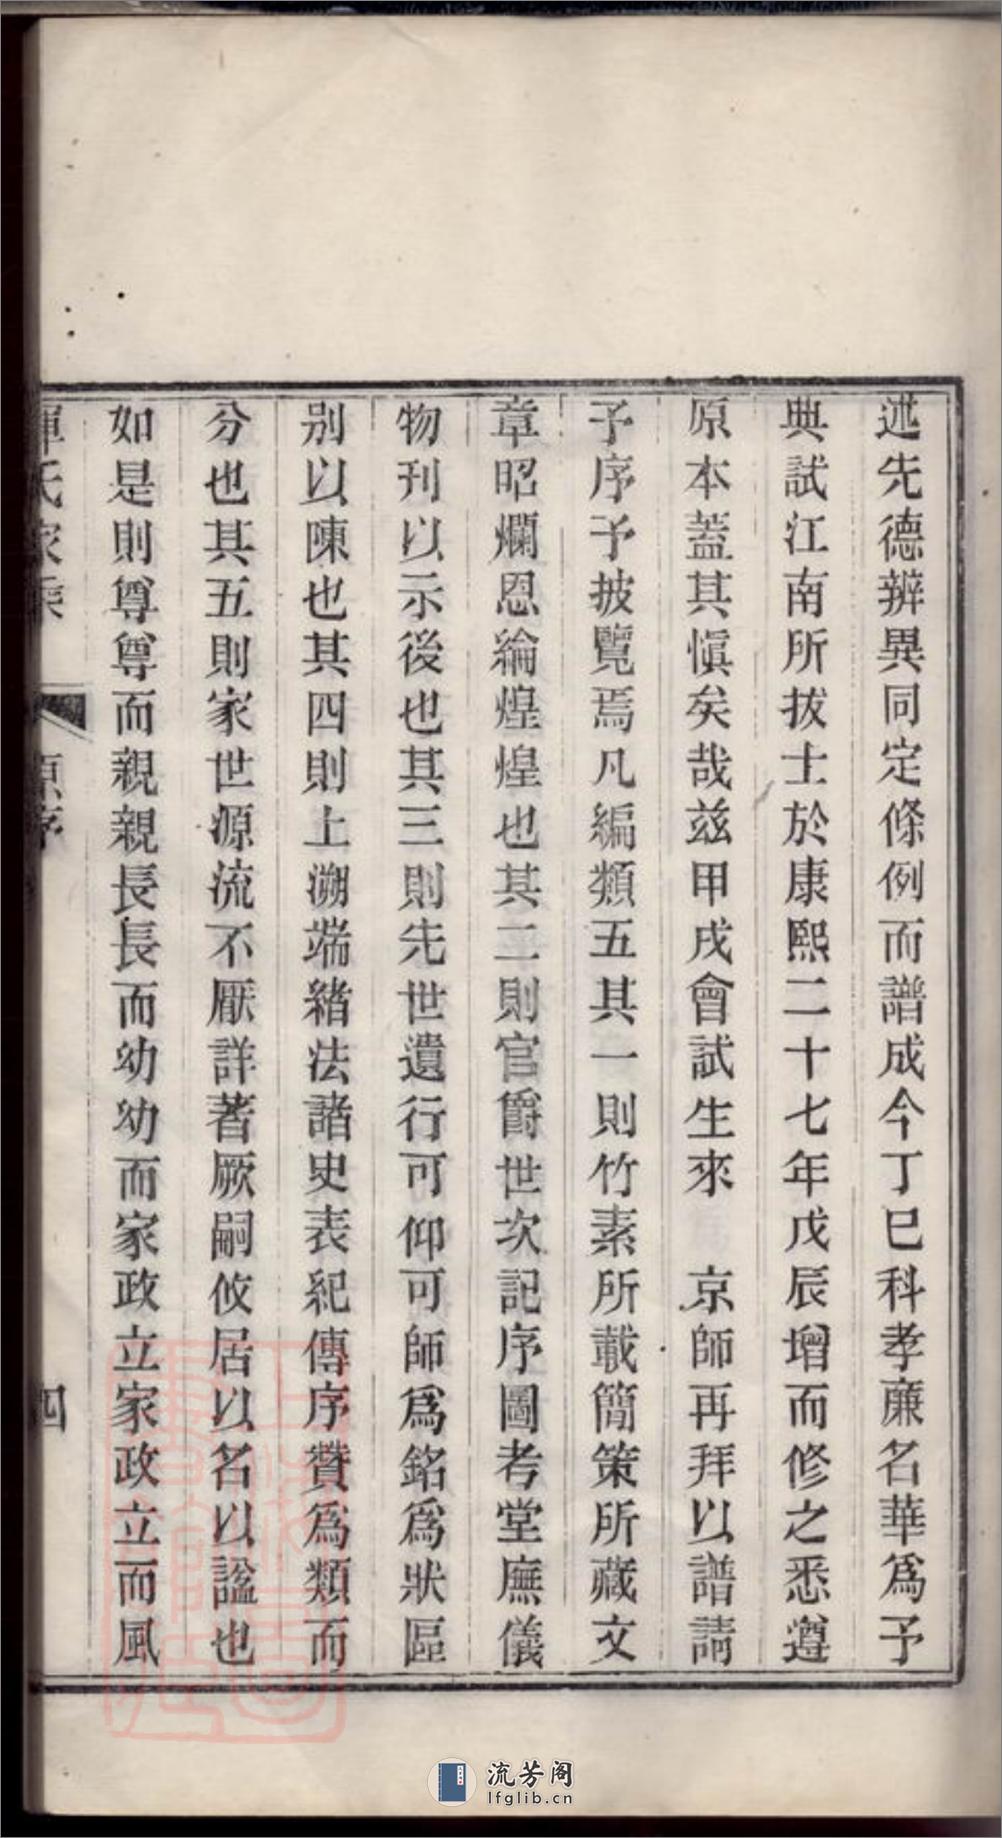 述先德辨異同定條例而譜成今丁巳科孝廉名華爲予
典試江南所拔士於康熙二十七年戊辰增而修之悉遵
原本蓋其愼矣哉兹甲戌會試生來 京師再拜以譜請
予序予披覽焉凡編類五其一則竹素所載簡策所藏文
章昭爛恩綸煌煌也其二則官爵世次記序圖考堂廡儀
物刊以示後也其三則先世遺行可仰可師爲銘爲狀區
别以陳也其四則上溯端緒法諸史表紀傳序贊爲類而
分也其五則家世源流不厭詳著厥嗣攸居以名以諡也
如是則尊尊而親親長長而幼幼而家政立家政立而風
惲氏家乘 原序 四
流芳阁
lfglib.cn